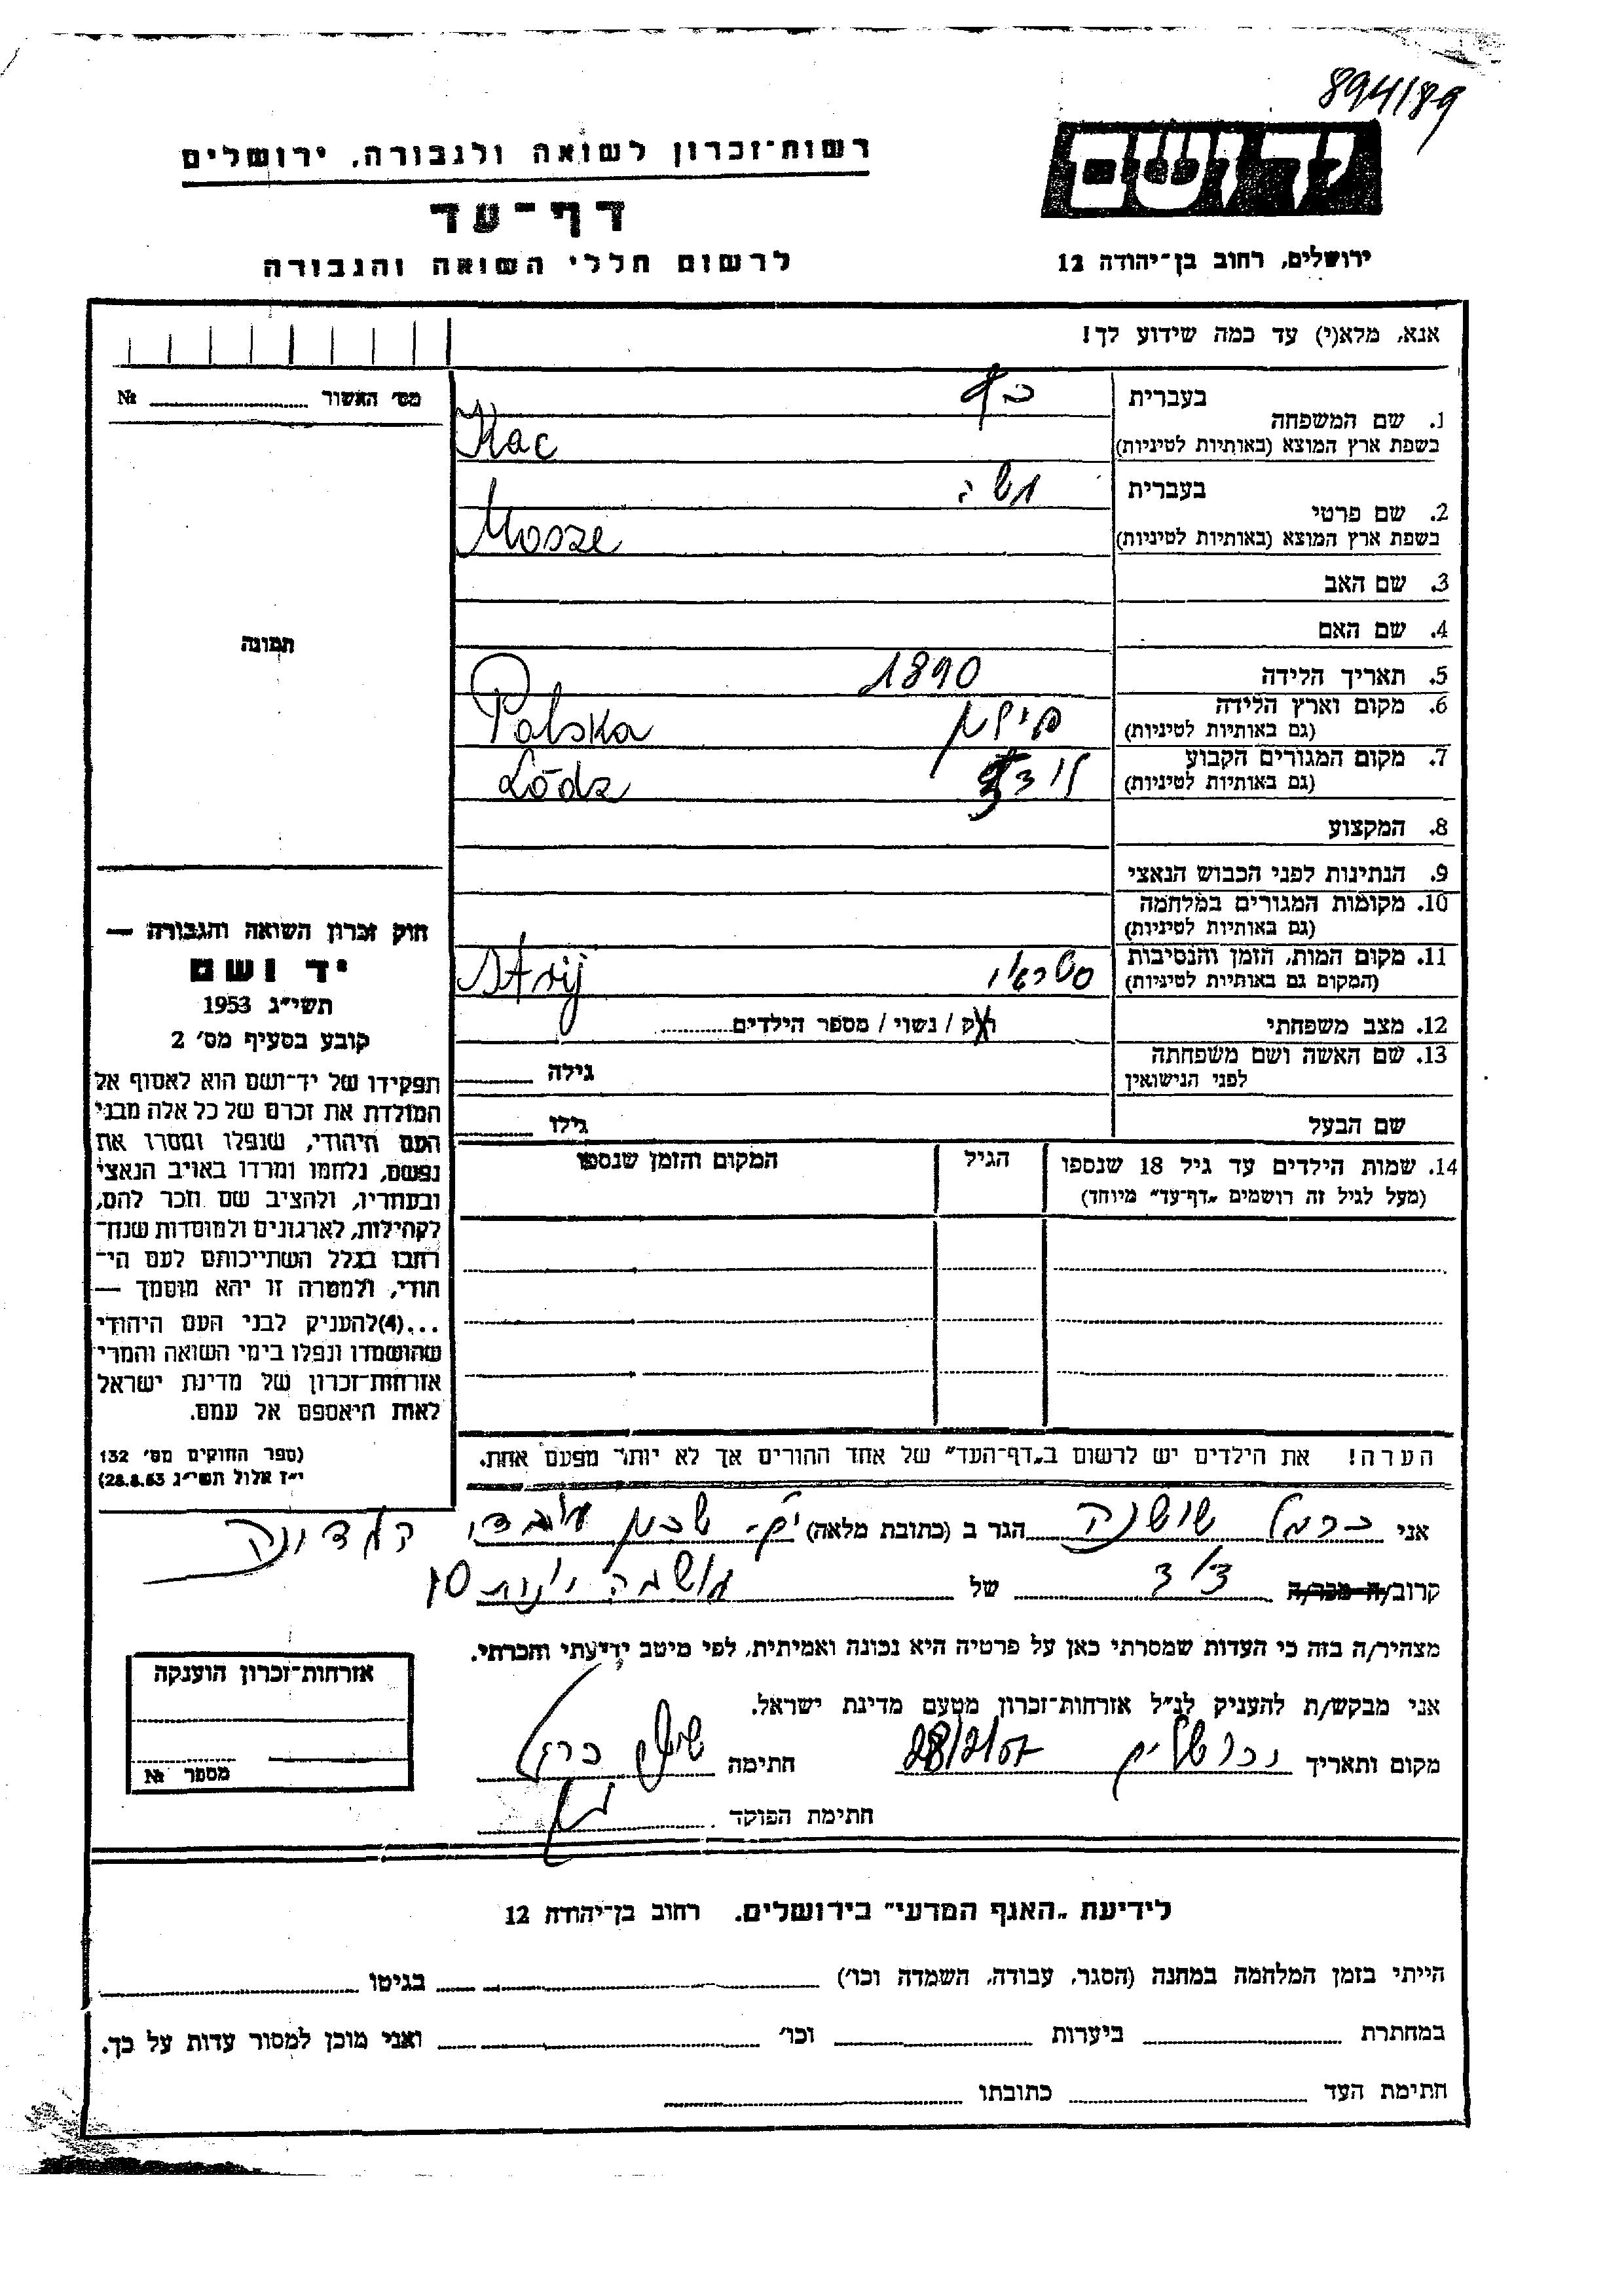 894/89
יד ושם
רשות־זכרון לשואה ולגבורה, ירושלים
דף־עד
לרשום חללי השואה והגבורה
ירושלים, רחוב בן־יהודה 12
אנא, מלא(י) עד כמה שידוע לך!
מס׳ האשור № 
1. שם המשפחה
בעברית כץ
בשפת ארץ המוצא (באותיות לטיניות) Kac
2. שם פרטי
בעברית משה
בשפת ארץ המוצא (באותיות לטיניות) Mosze
3. שם האב
4. שם האם
תמונה
5. תאריך הלידה 1890
6. מקום וארץ הלידה
(גם באותיות לטיניות) פולין Polska
7. מקום המגורים הקבוע
(גם באותיות לטיניות) Łódz
8. המקצוע
9. הנתינות לפני הכבוש הנאצי
10. מקומות המגורים במלחמה
(גם באותיות לטיניות)
11. מקום המות, הזמן והנסיבות
(המקום גם באותיות לטיניות) Strij
12. מצב משפחתי רוק / נשוי / מספר הילדים
13. שם האשה ושם משפחתה
לפני הנישואין גילה
שם הבעל גילו
14. שמות הילדים עד גיל 18 שנספו
(מעל לגיל זה רושמים „דף־עד״ מיוחד)
הגיל
המקום והזמן שנספו
חוק זכרון השואה והגבורה —
יד ושם
תשי״ג 1953
קובע בסעיף מס׳ 2
תפקידו של יד־ושם הוא לאסוף אל
המולדת את זכרם של כל אלה מבני
העם היהודי, שנפלו ומסרו את
נפשם, נלחמו ומרדו באויב הנאצי
ובעוזריו, ולהציב שם וזכר להם,
לקהילות, לארגונים ולמוסדות שנח־
רבו בגלל השתייכותם לעם הי־
הודי, ולמטרה זו יהא מוסמך —
...(4)להעניק לבני העם היהודי
שהושמדו ונפלו בימי השואה והמרי
אזרחות־זכרון של מדינת ישראל
לאות היאספם אל עמם.
(ספר החוקים מס׳ 132
י״ז אלול תשי״ג 28.8.53)
הערה! את הילדים יש לרשום ב„דף־העד״ של אחד ההורים אך לא יותר מפעם אחת.
אני כרמל שושנה הגר ב (כתובת מלאה)
קרוב/ה מכר/ה של
מצהיר/ה בזה כי העדות שמסרתי כאן על פרטיה היא נכונה ואמיתית, לפי מיטב ידיעתי והכרתי.
אני מבקש/ת להעניק לנ״ל אזרחות־זכרון מטעם מדינת ישראל.
מקום ותאריך ירושלים חתימה
חתימת הפוקד
אזרחות־זכרון הוענקה
מספר №
לידיעת „האגף המדעי״ בירושלים. רחוב בן־יהודה 12
הייתי בזמן המלחמה במחנה (הסגר, עבודה, השמדה וכו׳) בגיטו
במחתרת ביערות וכו׳ ואני מוכן למסור עדות על כך.
חתימת העד כתובתו